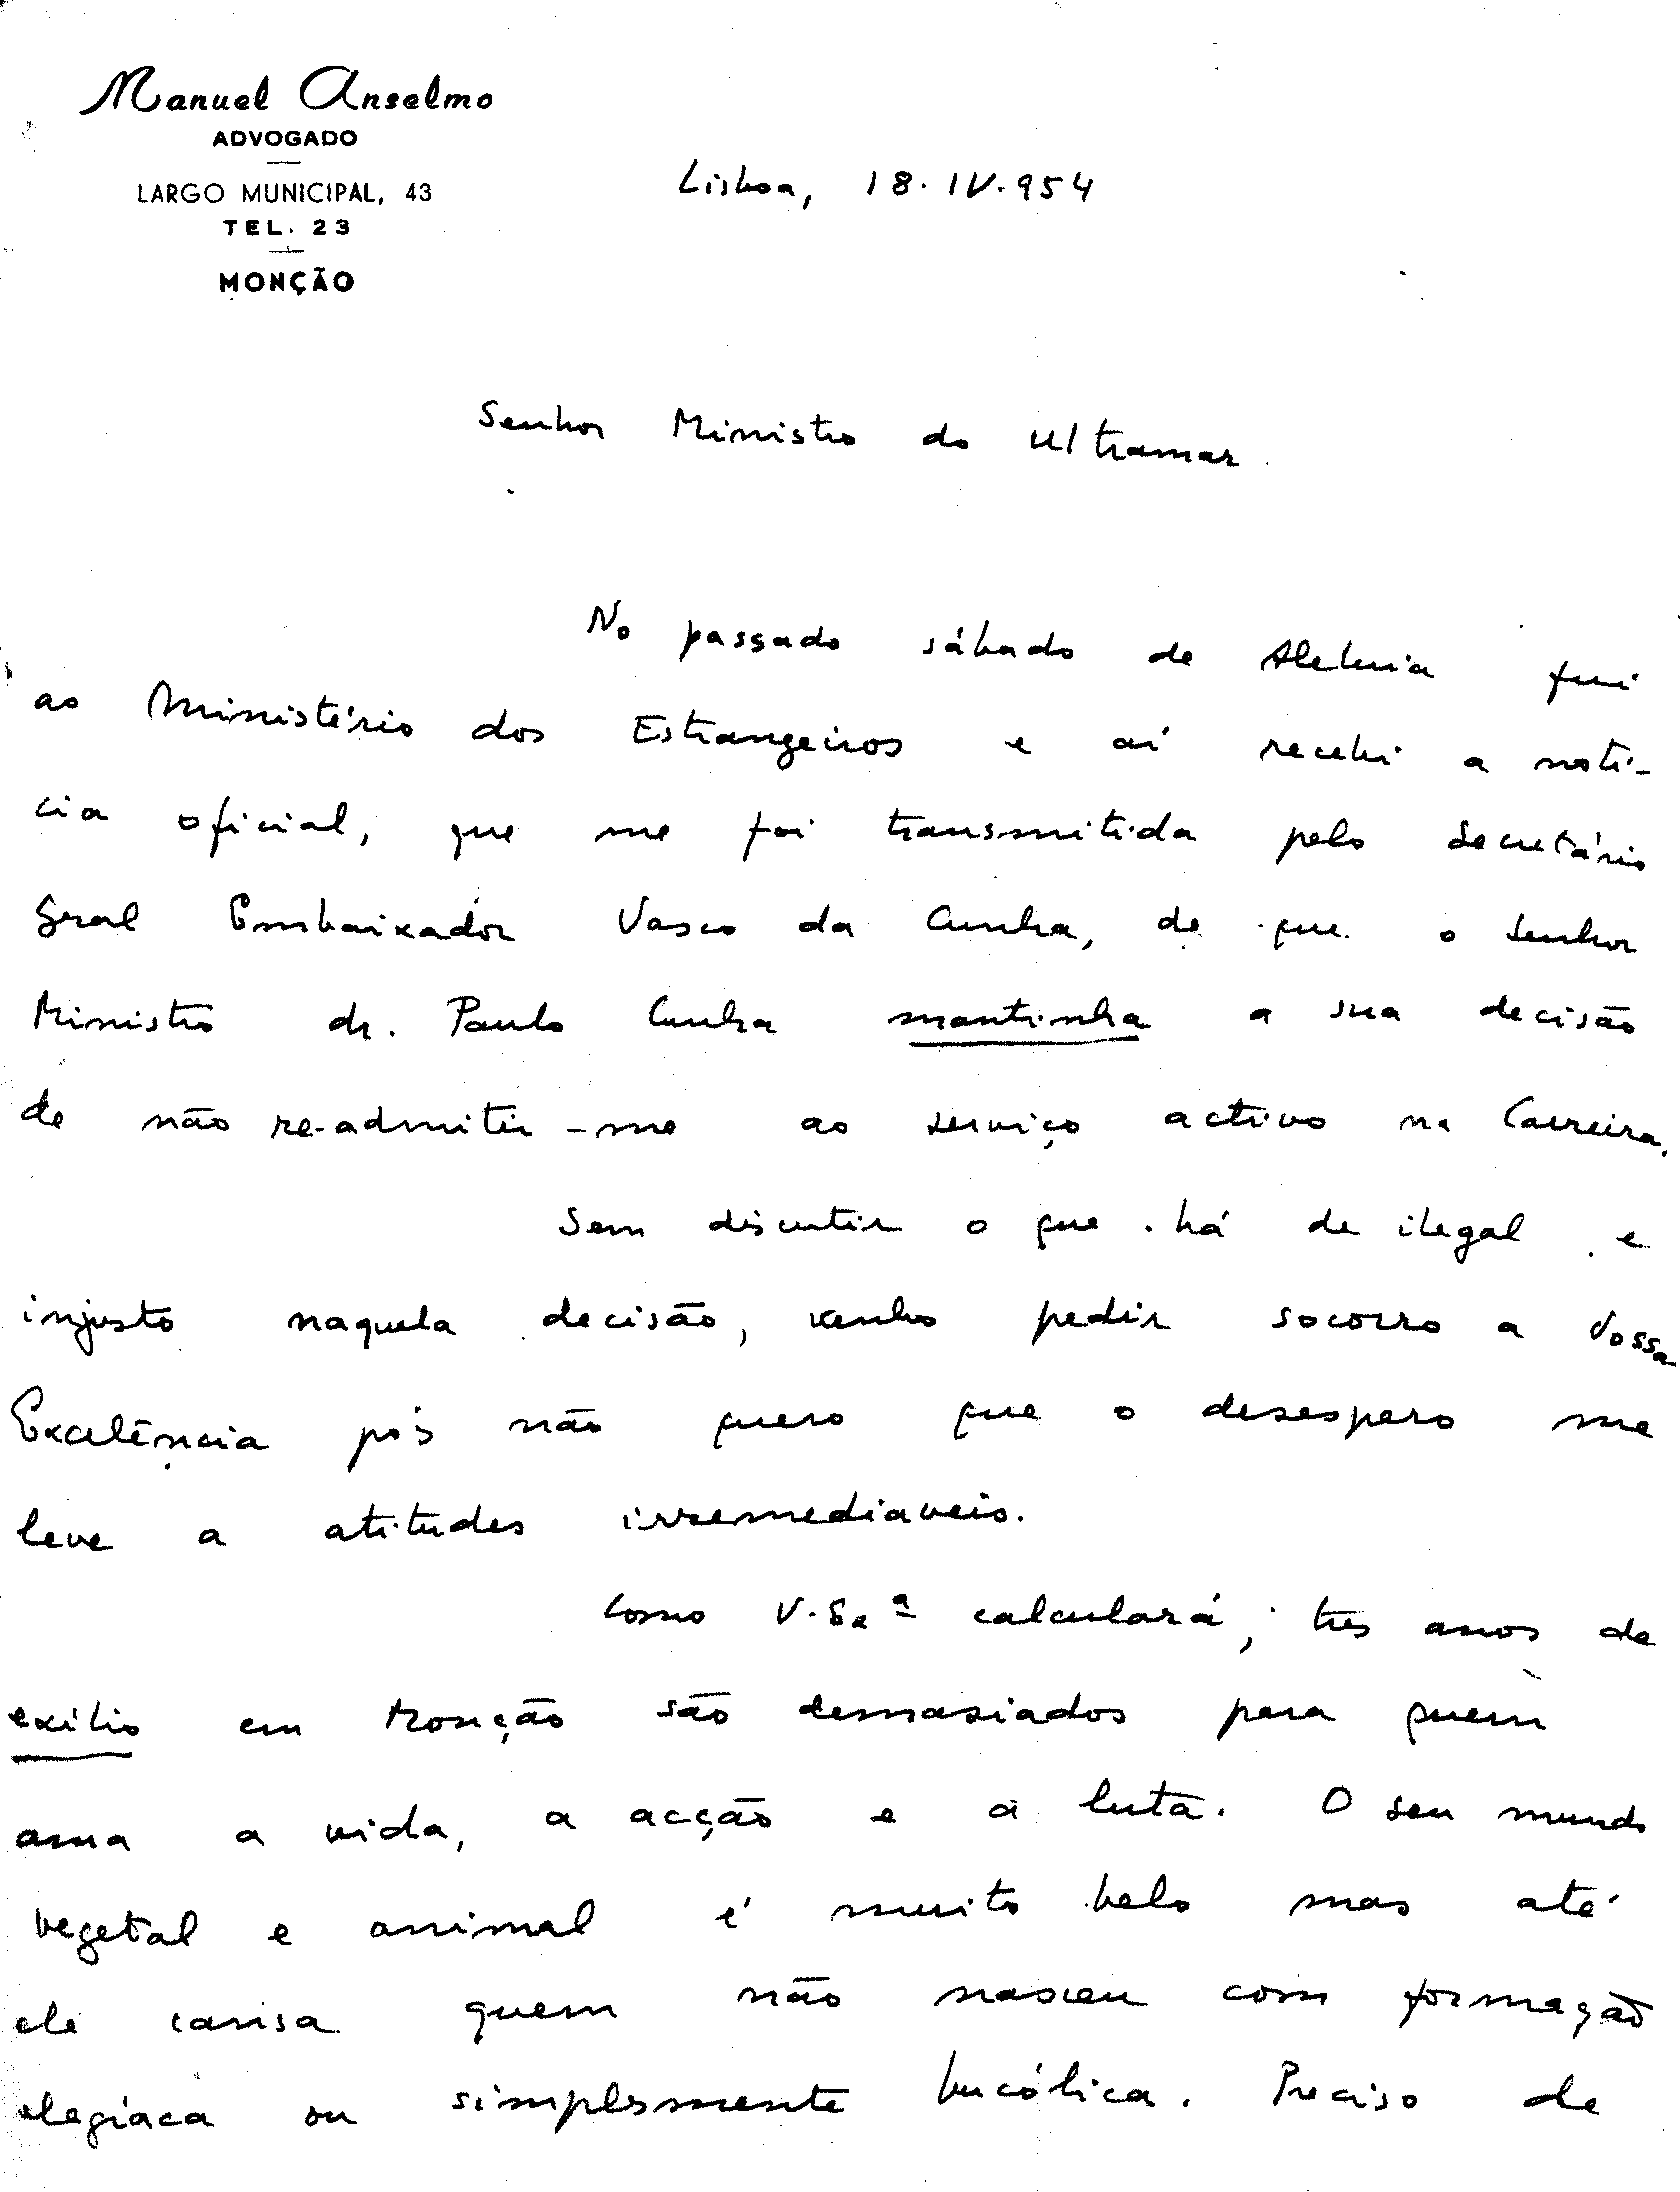 Manuel Anselmo
ADVOGADO
LARGO MUNICIPAL, 43
TEL. 23
MONÇÃO
Lisboa, 18.IV.954
Senhor Ministro do Ultramar.
No passado sábado de Aleluia fui
ao Ministério dos Estrangeiros e aí recebi a notí-
cia oficial, que me foi transmitida pelo Secretário
Geral Embaixador Vasco da Cunha, de que o Senhor
Ministro dr. Paulo Cunha mantinha a sua decisão
de não re-admitir-me ao serviço activo na Carreira.
Sem discutir o que há de ilegal e
injusto naquela decisão, venho pedir socorro a Vossa
Excelência pois não quero que o desespero me
leve a atitudes irremediaveis.
Como V. Exª calculará, três anos de
exílio em Monção são demasiados para quem
ama a vida, a acção e a luta. O seu mundo
vegetal e animal é muito belo mas até
ele cansa quem não nasceu com formação
elegíaca ou simplesmente bucólica. Preciso de